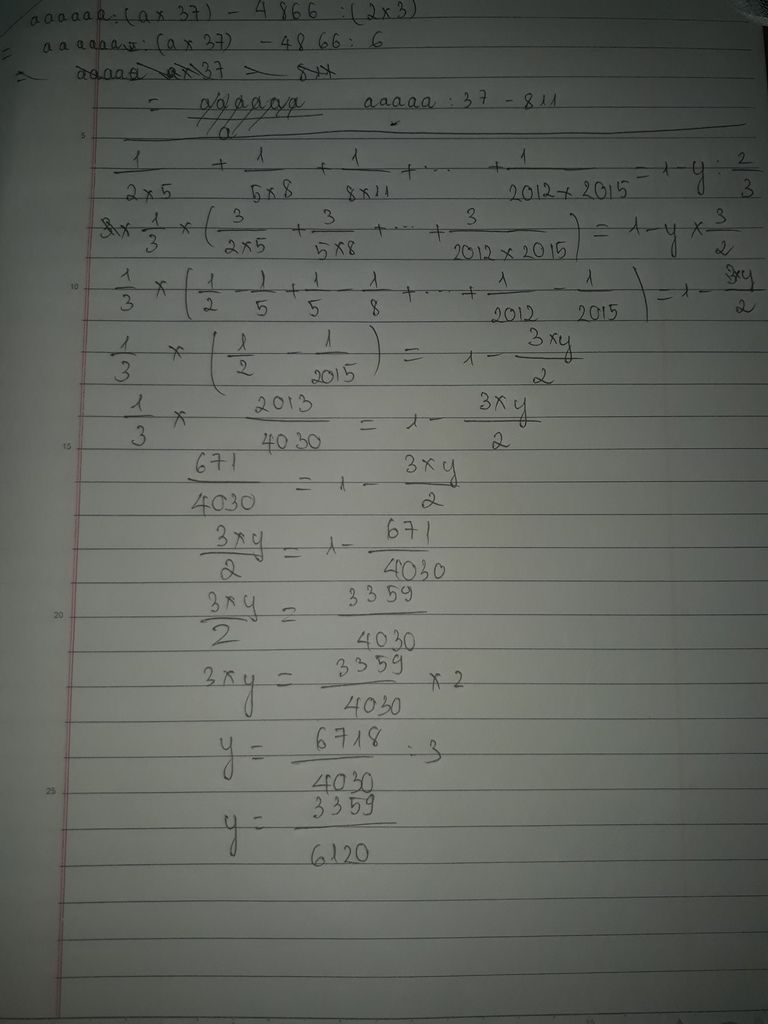 aaaaaa : (a x 37) - 4 866 : (2 x 3)
= aaaaaa : (a x 37) - 4866 : 6
= aaaaa ax 37 - 811
= aaaaaa / a aaaaa : 37 - 811
1/2x5 + 1/5x8 + 1/8x11 + ... + 1/2012 x 2015 = 1 - y : 2/3
x 1/3 x (3/2x5 + 3/5x8 + ... + 3/2012 x 2015) = 1 - y x 3/2
1/3 x (1/2 - 1/5 + 1/5 - 1/8 + ... + 1/2012 - 1/2015) = 1 - 3xy/2
1/3 x (1/2 - 1/2015) = 1 - 3xy/2
1/3 x 2013/4030 = 1 - 3xy/2
671/4030 = 1 - 3xy/2
3xy/2 = 1 - 671/4030
3xy/2 = 3359/4030
3xy = 3359/4030 x 2
y = 6718/4030 : 3
y = 3359/6120
5
10
15
20
25